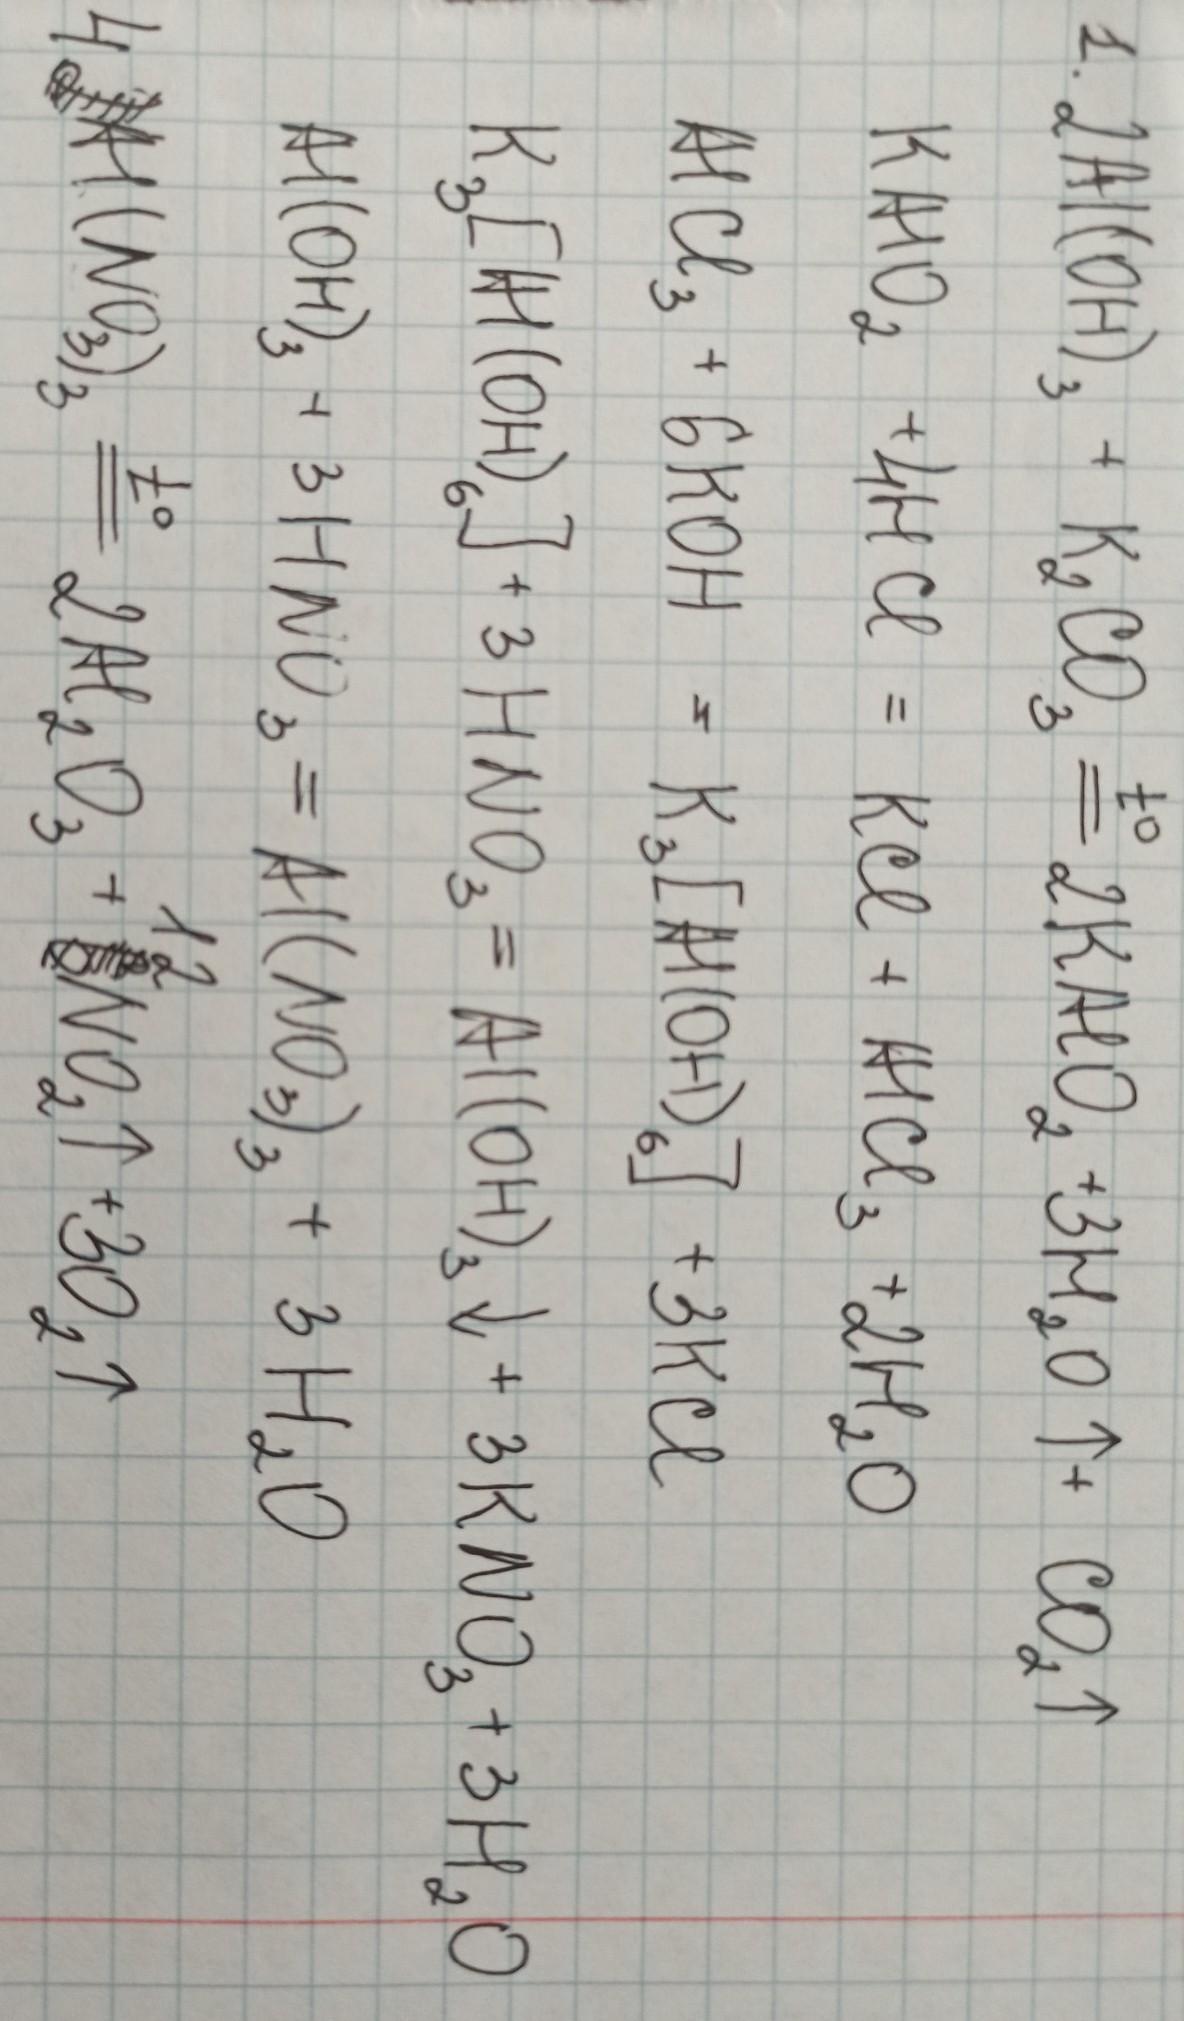 1. 2Al(OH)₃ + K₂CO₃ =t°= 2KAlO₂ + 3H₂O↑ + CO₂↑
KAlO₂ + 4HCl = KCl + AlCl₃ + 2H₂O
AlCl₃ + 6KOH = K₃[Al(OH)₆] + 3KCl
K₃[Al(OH)₆] + 3HNO₃ = Al(OH)₃↓ + 3KNO₃ + 3H₂O
Al(OH)₃ + 3HNO₃ = Al(NO₃)₃ + 3H₂O
4Al(NO₃)₃ =t°= 2Al₂O₃ + 12NO₂↑ + 3O₂↑